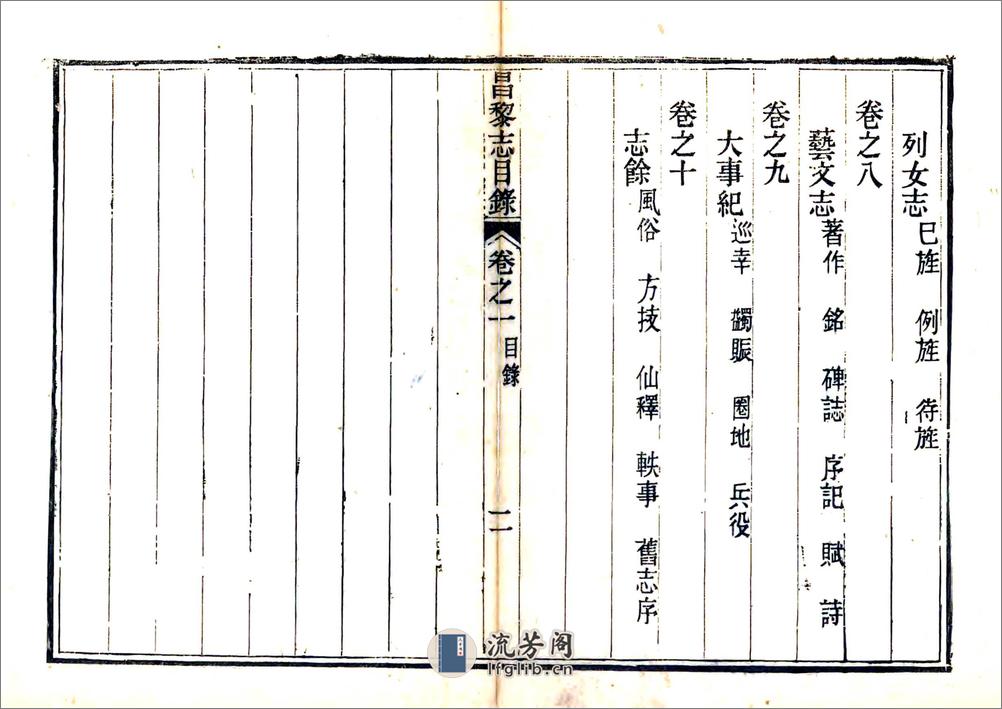 列女志 已旌 例旌 待旌
卷之八
藝文志 著作 銘 碑誌 序記 賦 詩
卷之九
大事紀 巡幸 蠲賑 圈地 兵役
卷之十
志餘 風俗 方技 仙釋 軼事 舊志序
昌黎志目錄 卷之一 目錄 二
流芳阁
lfglib.cn